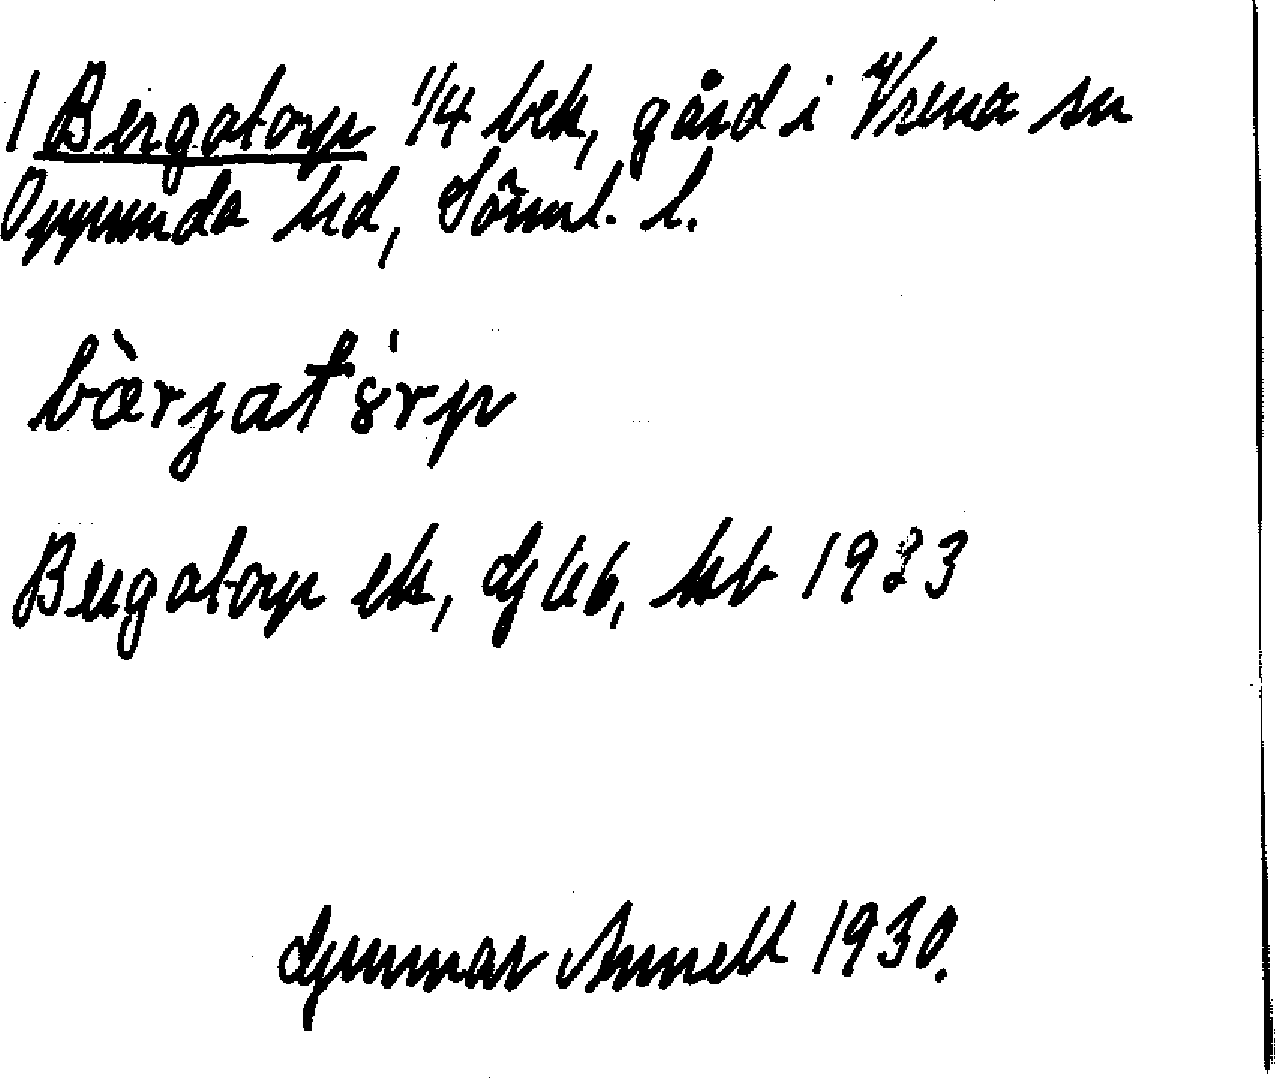 1 Bergatorp 1/4 bek, gård i Vrena sn
Oppunda hd, Söml. l.
bàrjatʹ8rp
Bergatorp ek, Gkb, kb 1923
Gunnar Annell 1930.